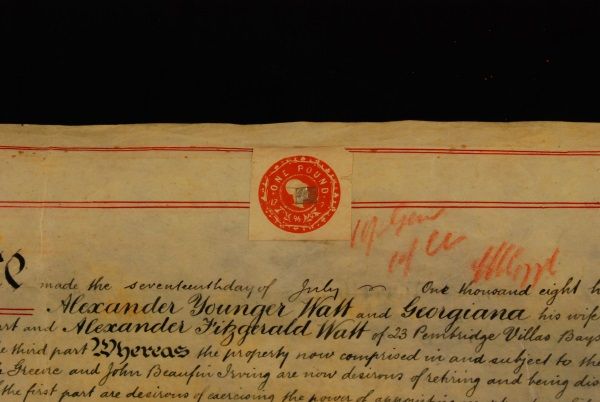 ONE POUND
17 7
96
made the seventeenth day of July One thousand eight h
Alexander Younger Watt and Georgiana his wife
art and Alexander Fitzgerald Watt of 23 Pembridge Villas Bays
e third part Whereas the property now comprised in and subject to the
Greeve and John Beaufin Irving are now desirous of retiring and being dis
the first part are desirous of exercising the power of